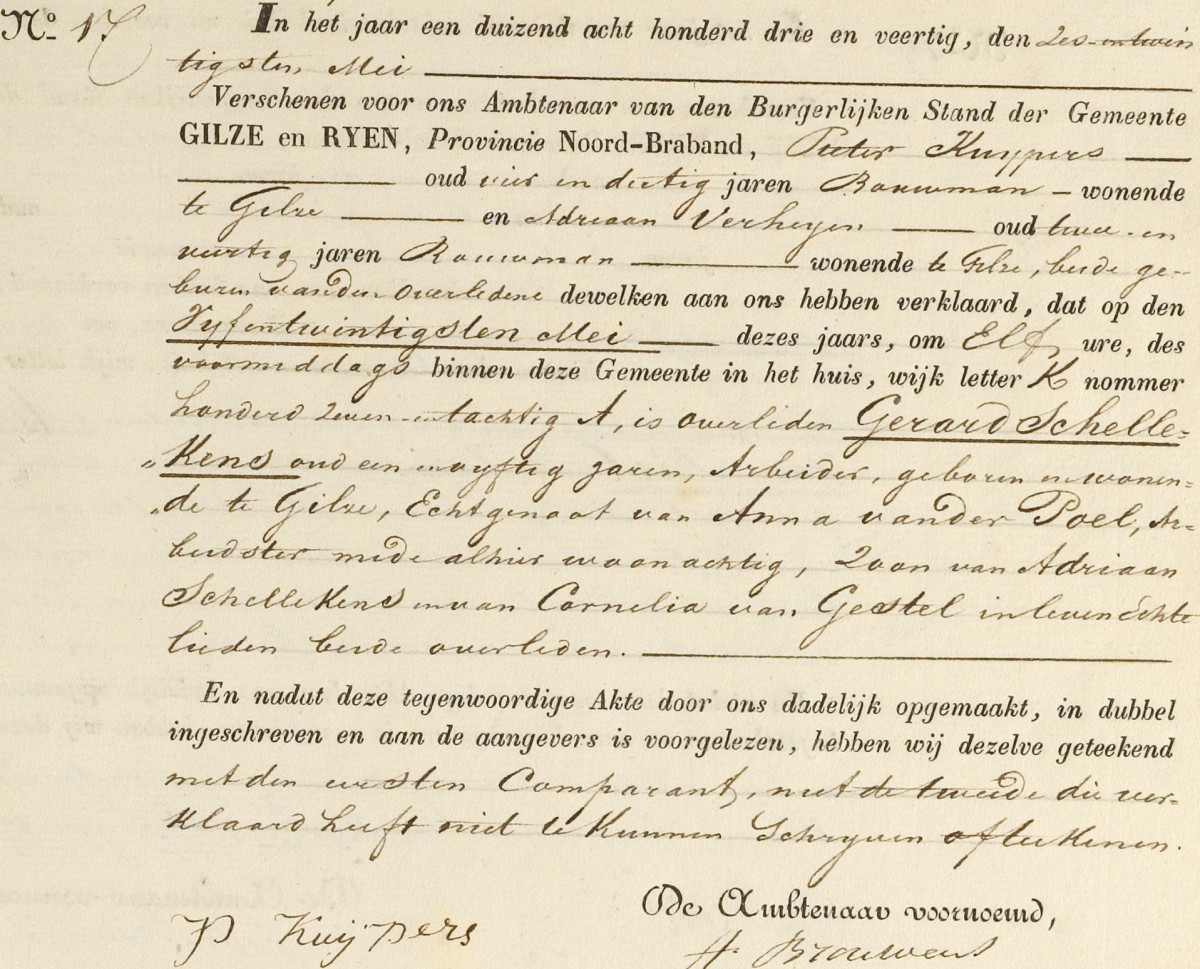 No. 17 In het jaar een duizend acht honderd drie en veertig, den zes-entwin
tigsten Mei
Verschenen voor ons Ambtenaar van den Burgerlijken Stand der Gemeente
GILZE en RYEN, Provincie Noord-Braband, Peeter Kuypers
oud vier en dertig jaren Bouwman – wonende
te Gilze en Adriaan Verheyen oud twee-en
veertig jaren Bouwman wonende te Gilze, beide ge-
buren vanden overledene dewelken aan ons hebben verklaard, dat op den
Vyfentwintigsten Mei dezes jaars, om Elf ure, des
voormiddags binnen deze Gemeente in het huis, wijk letter K nommer
honderd zeven-entachtig A, is overleden Gerard Schelle=
„Kens oud een envyftig jaren, Arbeider, geboren en wonen=
„de te Gilze, Echtgenoot van Anna vander Poel, Ar=
beidster mede alhier woonachtig, Zoon van Adriaan
Schellekens en van Cornelia van Gestel in leven échte
lieden beide overleden.
En nadat deze tegenwoordige Akte door ons dadelijk opgemaakt, in dubbel
ingeschreven en aan de aangevers is voorgelezen, hebben wij dezelve geteekend
met den eersten Comparant, met de tweede die ver-
klaard heeft niet te kunnen Schryven of teekenen.
De Ambtenaar voornoemd,
P Kuijpers
A. Brouwers